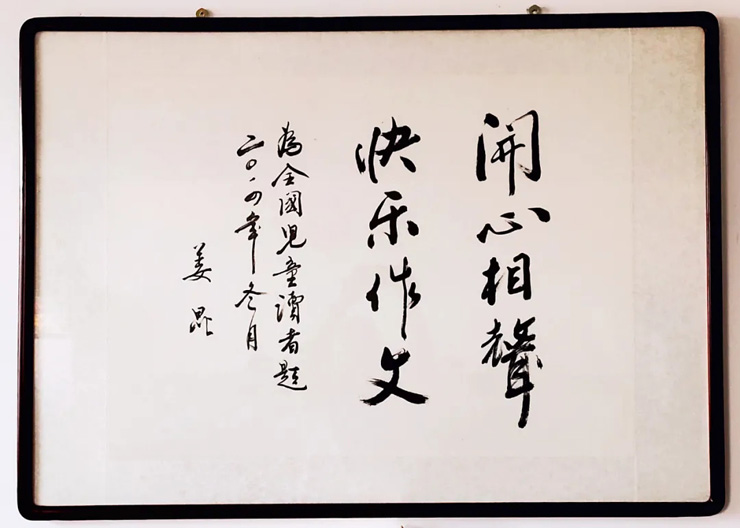 開心相聲
快乐作文
為全國児童讀者題
二〇一四年冬月
姜昆